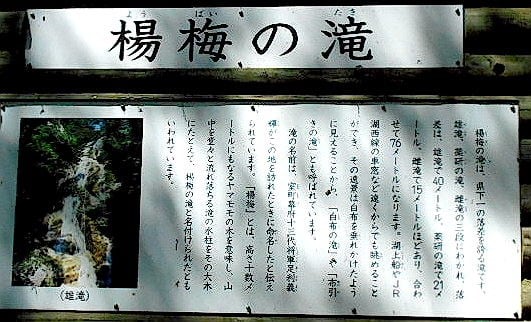 よう ばい たき
楊梅の滝
楊梅の滝は、県下一の落差を誇る滝です。
雄滝、薬研の滝、雌滝の三段にわかれ、落
差は、雄滝で40メートル、薬研の滝で21メ
ートル、雌滝で15メートルほどあり、合わ
せて76メートルになります。湖上船やJR
湖西線の車窓など遠くからでも眺めること
ができ、その遠景は白布を垂れかけたよう
に見えることから、「白布の滝」や「布引
きの滝」とも呼ばれています。
滝の名前は、室町幕府十三代将軍足利義
輝がこの地を訪れたときに命名したと伝え
られています。「楊梅」とは、高さ十数メ
ートルにもなるヤマモモの木を意味し、山
中を堂々と流れ落ちる滝の水柱をその大木
にたとえて、楊梅の滝と名付けられたとも
いわれています。
(雄滝)